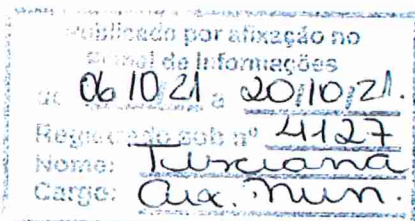 Publicado por afixação no
Painel de Informações
de 06/10/21 a 20/10/21.
Registrado sob nº 4127
Nome: Tusciana
Cargo: Aux. Mun.